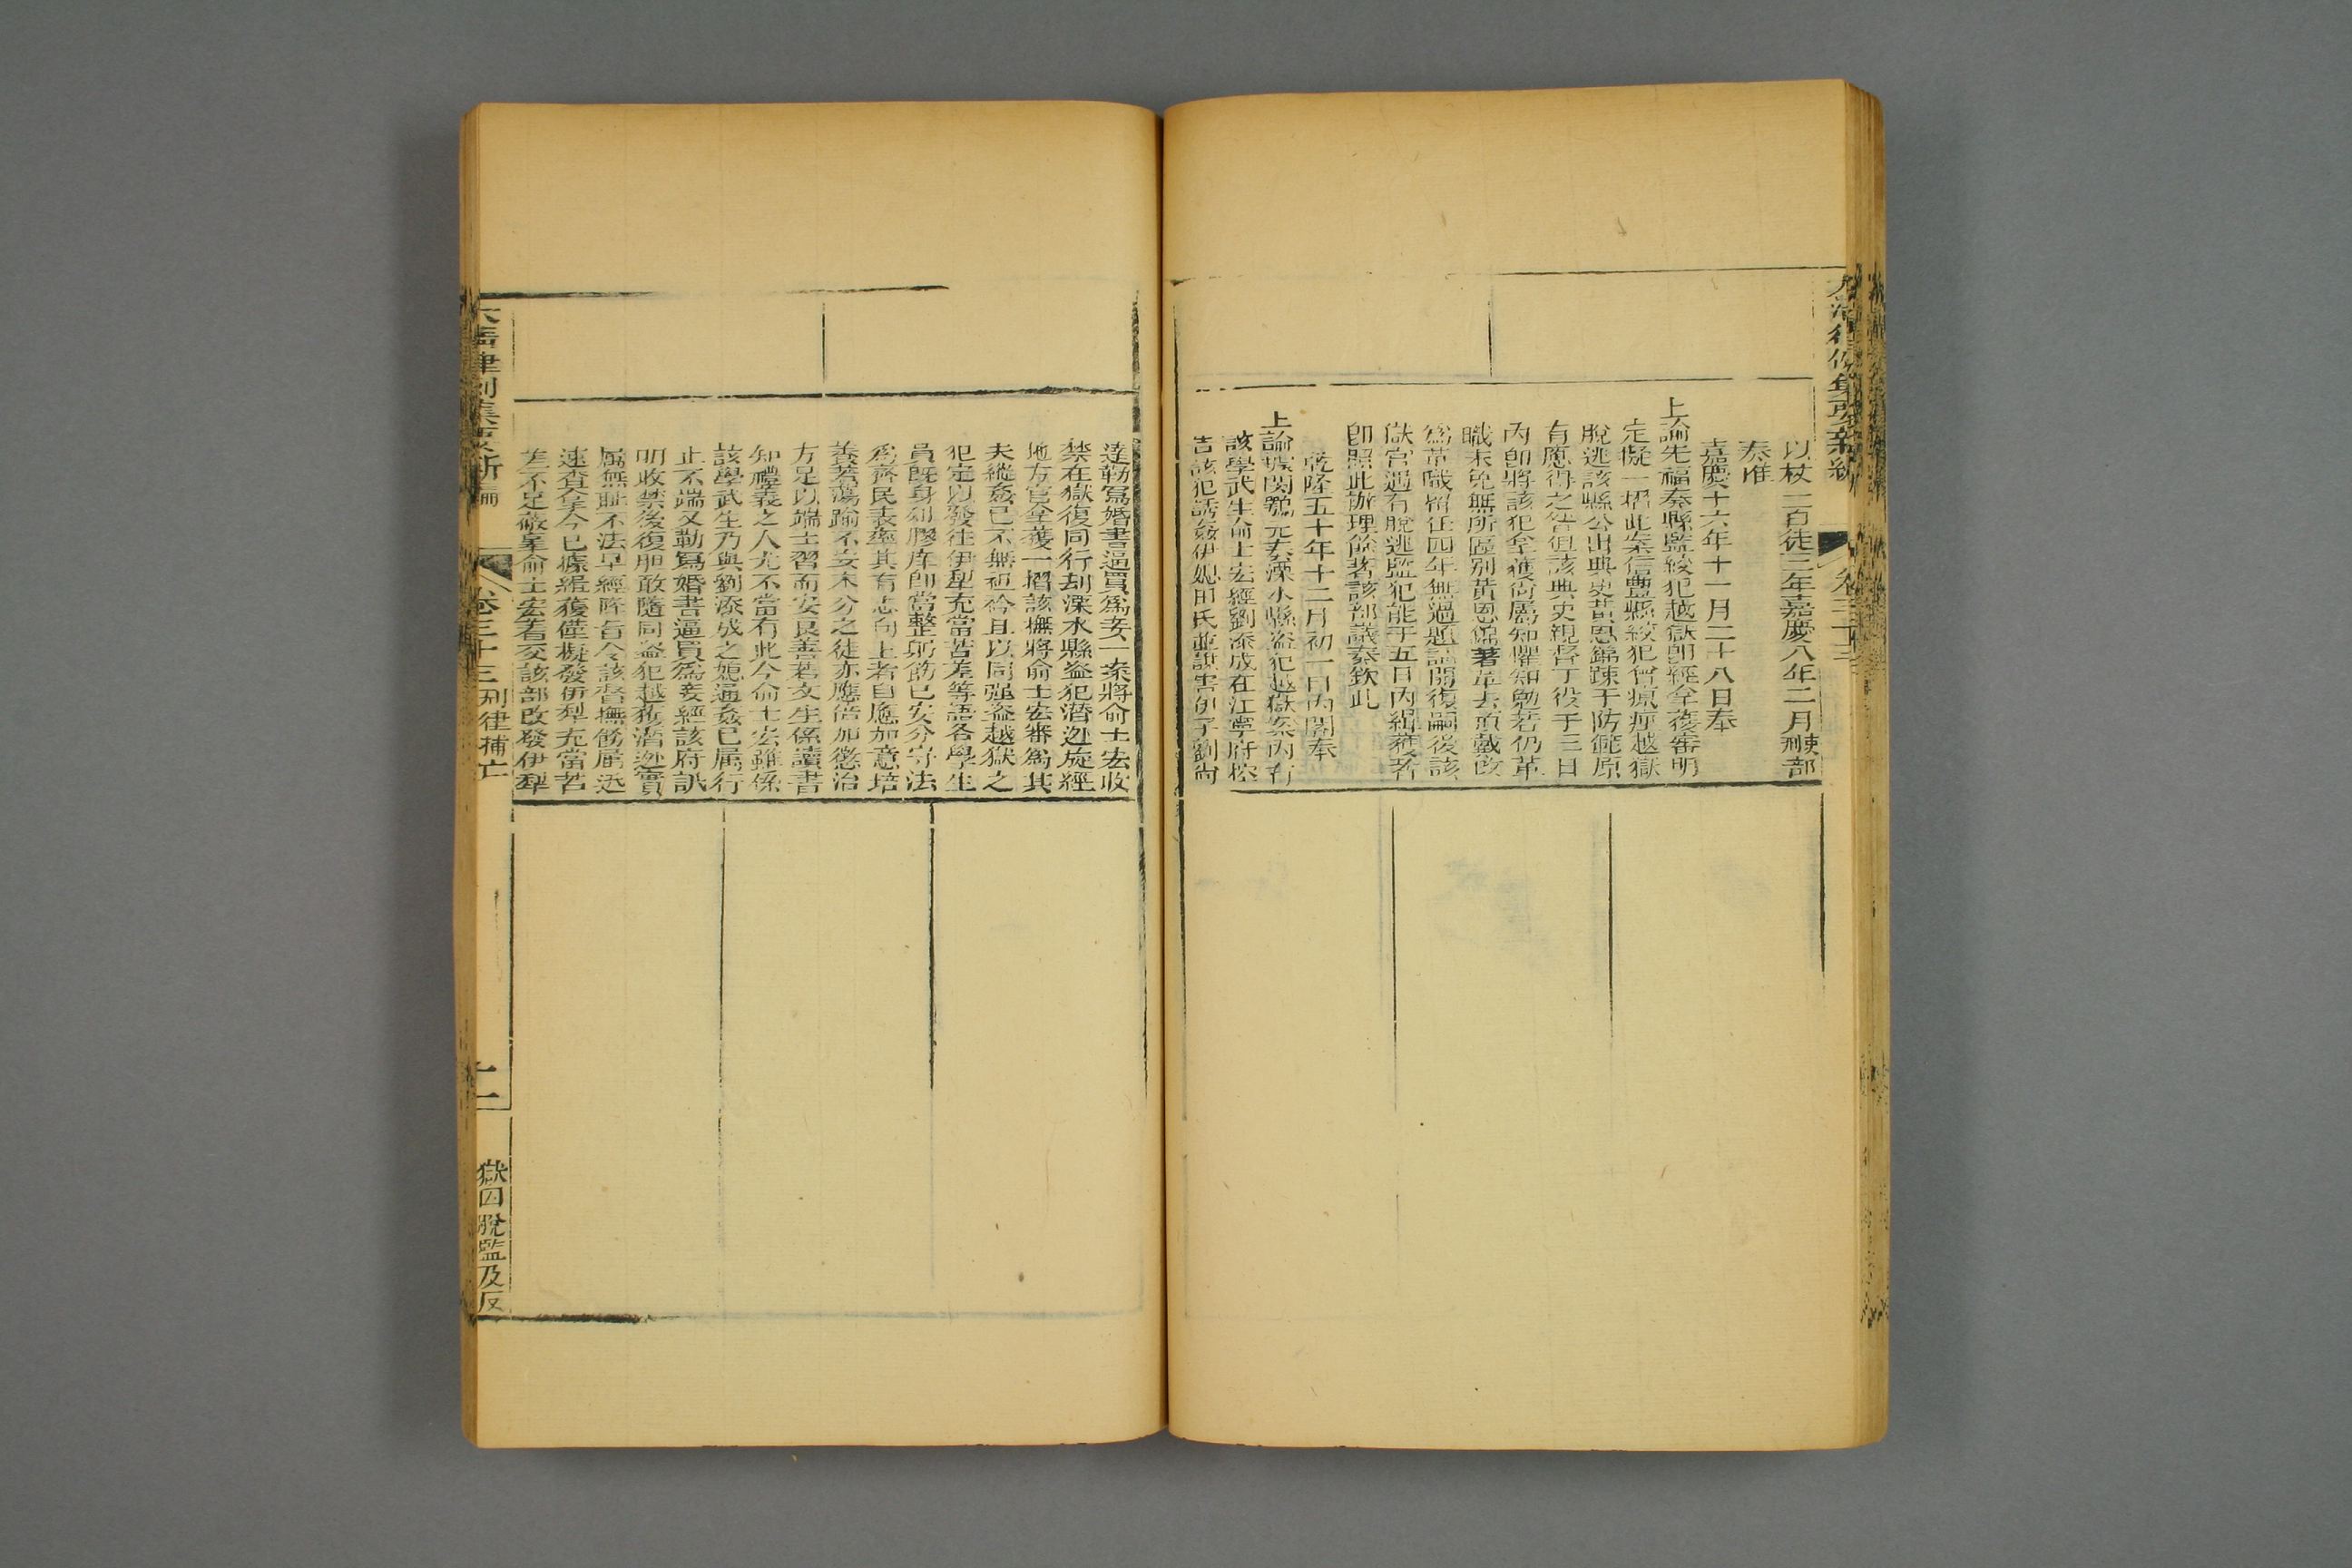 大清律例集要新編
卷三十三
以杖一百徒三年嘉慶八年二月刑部
奏准
嘉慶十六年十一月二十八日奉
上諭先福奏縣監絞犯越獄即經全獲審明
定擬一摺此案信豐縣絞犯曾痕疤越獄
脫逃該縣公出典史黃恩錦疎于防範原
有應得之咎但該典史親督丁役于三日
內即將該犯全獲尚屬知懼知勉若仍革
職未免無所區別黃恩錦著革去頂戴改
爲革職留任四年無過題請開復嗣後該
獄官遇有脫逃監犯能于五日內緝獲者
即照此辦理餘著該部議奏欽此
乾隆五十年十二月初一日內閣奉
上諭據閔鶚元奏溧水縣盜犯越獄案內有
該學武生俞士宏經劉添成在江寧府控
告該犯誘姦伊媳田氏並謀害伊子劉尙
達勒寫婚書逼買爲妾一案將俞士宏收
禁在獄復同行刦溧水縣盜犯潛逃旋經
地方官全獲一摺該撫將俞士宏審爲其
夫縱姦已不無袒衿且以同强盜越獄之
犯定以發往伊犁充當苦差等語各學生
員既身列膠庠即當整躬飭已安分守法
爲齊民表率其有志向上者自應加意培
養若蕩踰不安本分之徒亦應倍加懲治
方足以端士習而安良善若文生係讀書
知禮義之人尤不當有此今俞士宏雖係
該學武生乃與劉添成之媳通姦已屬行
止不端又勒寫婚書逼買爲妾經該府訊
明收禁後復胆敢隨同盜犯越獄潛逃實
屬無耻不法早經降旨令該督撫飭屬迅
速查拿今已據緝獲僅擬發伊犁充當苦
差不足蔽辜俞士宏著交該部改發伊犁
大清律例集要新編
卷三十三 刑律捕亡
十一
獄囚脫監及反